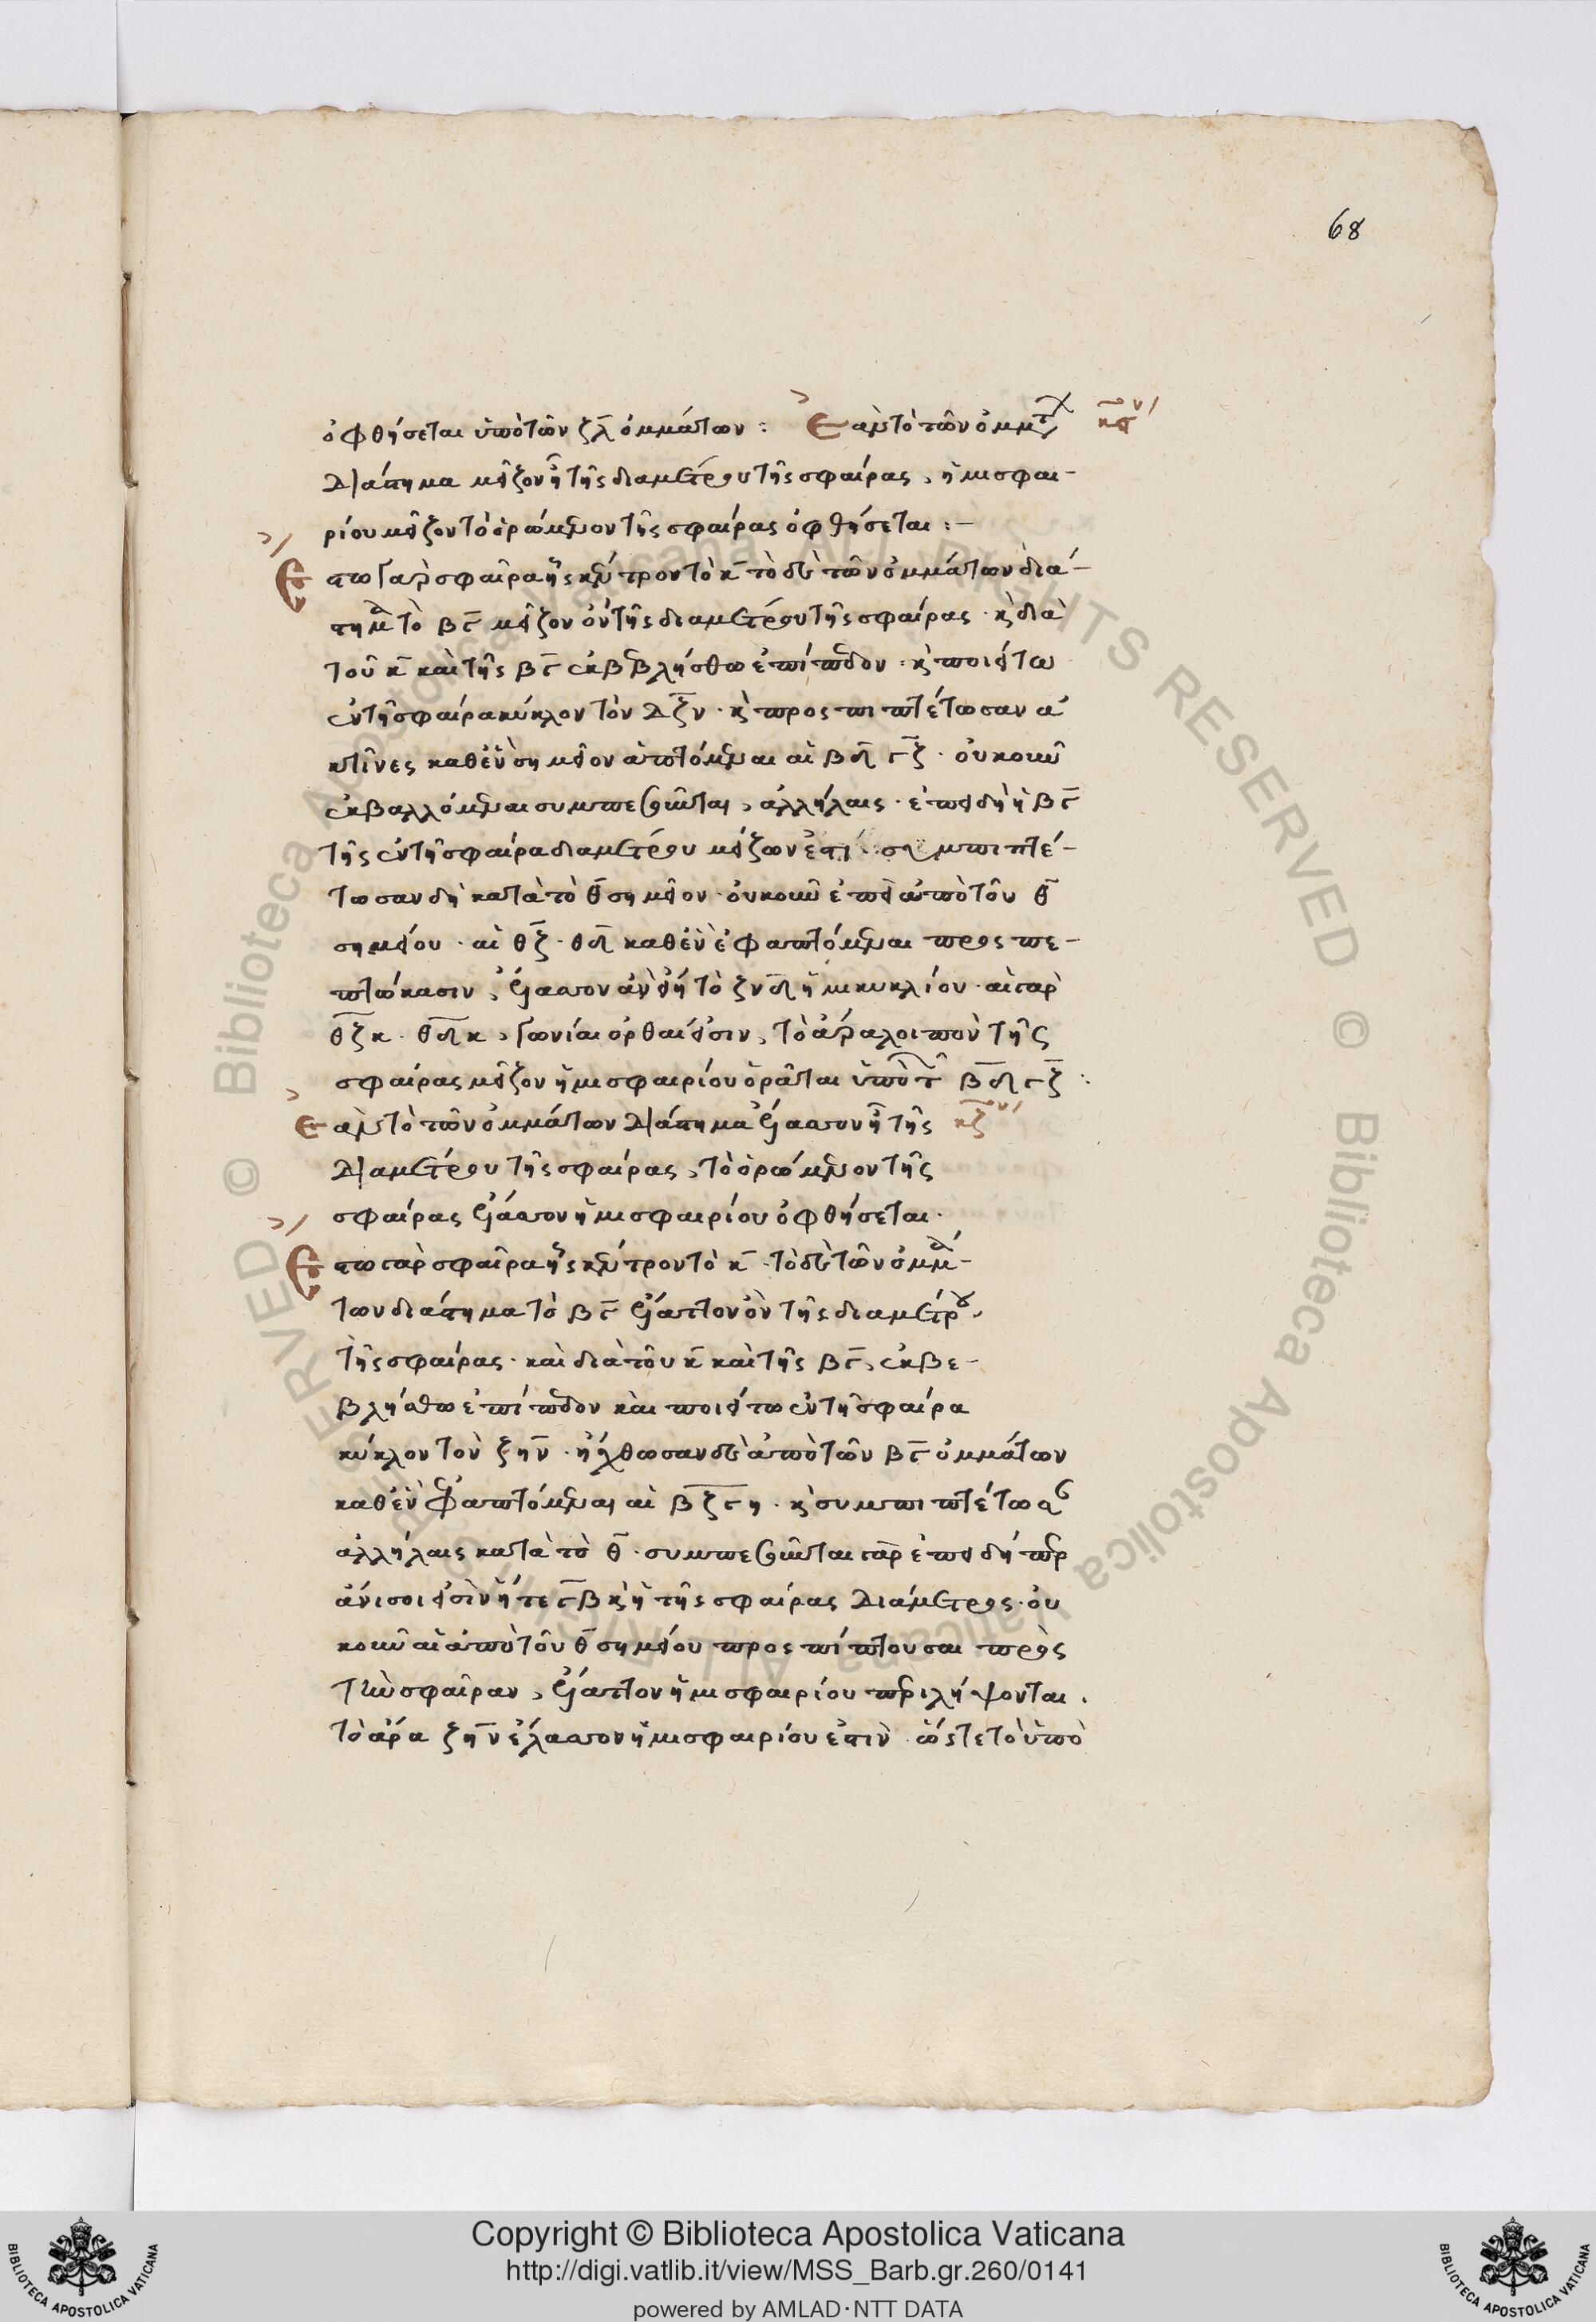 68
ὀφθήσεται ὑπὸ τῶν ζλ ὀμμάτων : Ἐὰν τὸ τῶν ὀμμτ κϛον
διάστημα μεῖζον ᾖ τῆς διαμέτρου τῆς σφαίρας, ἡμισφαι-
ρίου μεῖζον τὸ ὁρώμενον τῆς σφαίρας ὀφθήσεται :-
Ἔστω γὰρ σφαῖρα ἧς κέντρον τὸ κ τὸ δὲ τῶν ὀμμάτων διά-
στημα τὸ βγ μεῖζον ὂν τῆς διαμέτρου τῆς σφαίρας · κὶ διὰ
τοῦ κ καὶ τῆς βγ ἐκβεβλήσθω ἐπίπεδον · κὶ ποιείτω
ἐν τῆ σφαίρα κύκλον τὸν δζν · κὶ προσπιπτέτωσαν ἀ
κτῖνες καθὲν σημεῖον ἁπτόμεναι αἱ βδ γζ · οὐκοῦν
ἐκβαλλόμεναι συμπεσοῦνται, ἀλλήλαις · ἐπειδὴ ἡ βγ
τῆς ἐν τῆ σφαίρα διαμέτρου μείζων ἐστί συμπιπτέ-
τωσαν δὴ κατὰ τὸ θ σημεῖον · οὐκοῦν ἐπεὶ ἀπὸ τοῦ θ
σημείου · αἱ θζ · θδ καθὲν ἐφαπτόμεναι προσπε-
πτώκασιν, ἔλασσον ἂν εἴη τὸ ζνδ ἡμικυκλίου · αἱ γὰρ
θζκ · θδκ, γωνίαι ὀρθαί εἰσιν, τὸ ἄρα λοιπὸν τῆς
σφαίρας μεῖζον ἡμισφαιρίου ὁρᾶται ὑπὸ τ βδγζ :
Ἐὰν τὸ τῶν ὀμμάτων διάστημα ἔλασσον ᾖ τῆς κζον
διαμέτρου τῆς σφαίρας, τὸ ὁρώμενον τῆς
σφαίρας ἔλασσον ἡμισφαιρίου ὀφθήσεται ·
Ἔστω γὰρ σφαῖρα ἧς κέντρον τὸ κ · τὸ δὲ τῶν ὀμμά-
των διάστημα τὸ βγ ἔλαττον ὂν τῆς διαμέτρου
τῆς σφαίρας · καὶ διὰ τοῦ κ καὶ τῆς βγ, ἐκβε-
βλήσθω ἐπίπεδον καὶ ποιείτω ἐν τῆ σφαίρα
κύκλον τὸν ζην · ἤχθωσαν δὲ ἀπὸ τῶν βγ ὀμμάτων
καθὲν ἐφαπτόμεναι αἱ βζγη · κὶ συμπιπτέτωσαν
ἀλλήλαις κατὰ τὸ θ · συμπεσοῦνται γὰρ ἐπειδήπερ
ἄνισοι εἰσὶν ἥ τε γβ κὶ ἡ τῆς σφαίρας διάμετρος · οὐ
κοῦν αἱ ἀπὸ τοῦ θ σημείου προσπίπτουσαι πρὸς
τὴν σφαῖραν, ἔλαττον ἡμισφαιρίου περιλήψονται .
τὸ ἄρα ζην ἔλασσον ἡμισφαιρίου ἐστὶν · ὥστε τὸ ὑπὸ
Copyright © Biblioteca Apostolica Vaticana
http://digi.vatlib.it/view/MSS_Barb.gr.260/0141
powered by AMLAD·NTT DATA